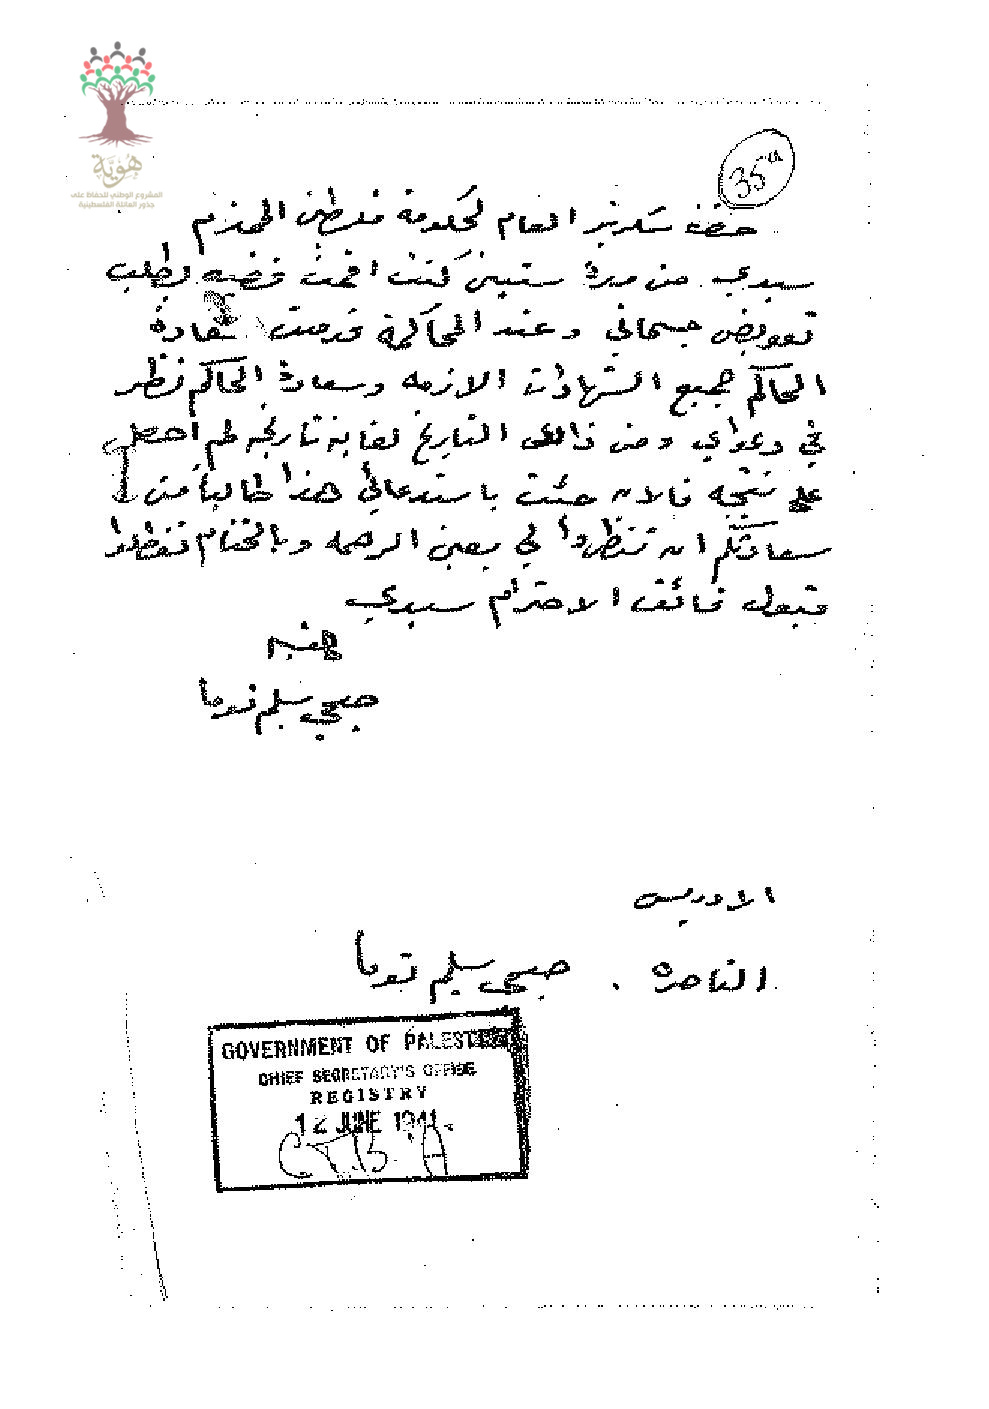 هُوِيَّة
المشروع الوطني للحفاظ على
جذور العائلة الفلسطينية
35
حضرة سكرتير العام لحكومة فلسطين المحترم
سيدي من مدة سنتين كنت اقمت قضيه بطلب
تعويض جسماني وعند المحاكمة قدمت سعادة
الحاكم جميع الشهادات الازمه وسعادة الحاكم نظر
في دعواي ومن ذالك التاريخ لغاية تاريخه لم احصل
على نتيجه فالان جئت باستدعائي هذا طالباً من
سعادتكم ان تنظروا لي بعين الرحمه وبالختام تفظلوا
قبول فائق الاحترام سيدي
صبحي سليم توما
الناصرة . صبحي سليم توما
GOVERNMENT OF PALESTINE
CHIEF SECRETARY'S OFFICE
REGISTRY
12 JUNE 1941